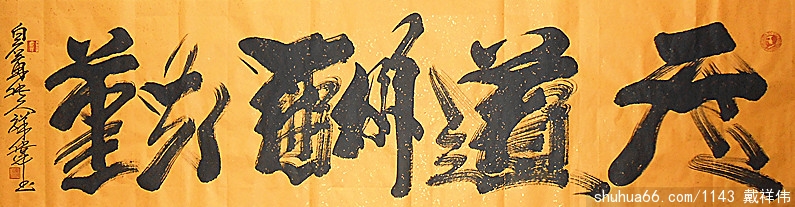 天道酬勤
白石再传人祥伟书
shuhua66.com/1143 戴祥伟